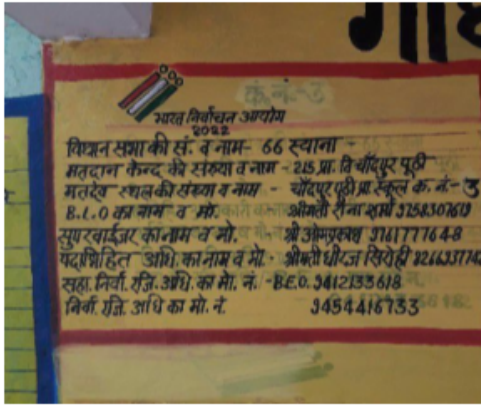 क. नं.-3
भारत निर्वाचन आयोग
2022
विधान सभा की सं. व नाम- 66 स्याना
मतदान केन्द्र की संख्या व नाम - 215 प्रा. वि चाँदपुर पूठी
मतदेय स्थल की संख्या व नाम - चाँदपुर पूठी प्रा. स्कूल क. नं.-3
B.L.O का नाम व मो. श्रीमती रीना शर्मा 9758307619
सुपरवाईजर का नाम व मो. श्री ओमप्रकाश 9761777648
पदाभिहित अधि. का नाम व मो - श्रीमती धीरज सिरोही
सहा. निर्वा. रजि. अधि. का मो. नं. - B.E.O. 9412133618
निर्वा. रजि. अधि का मो. नं 9454416733